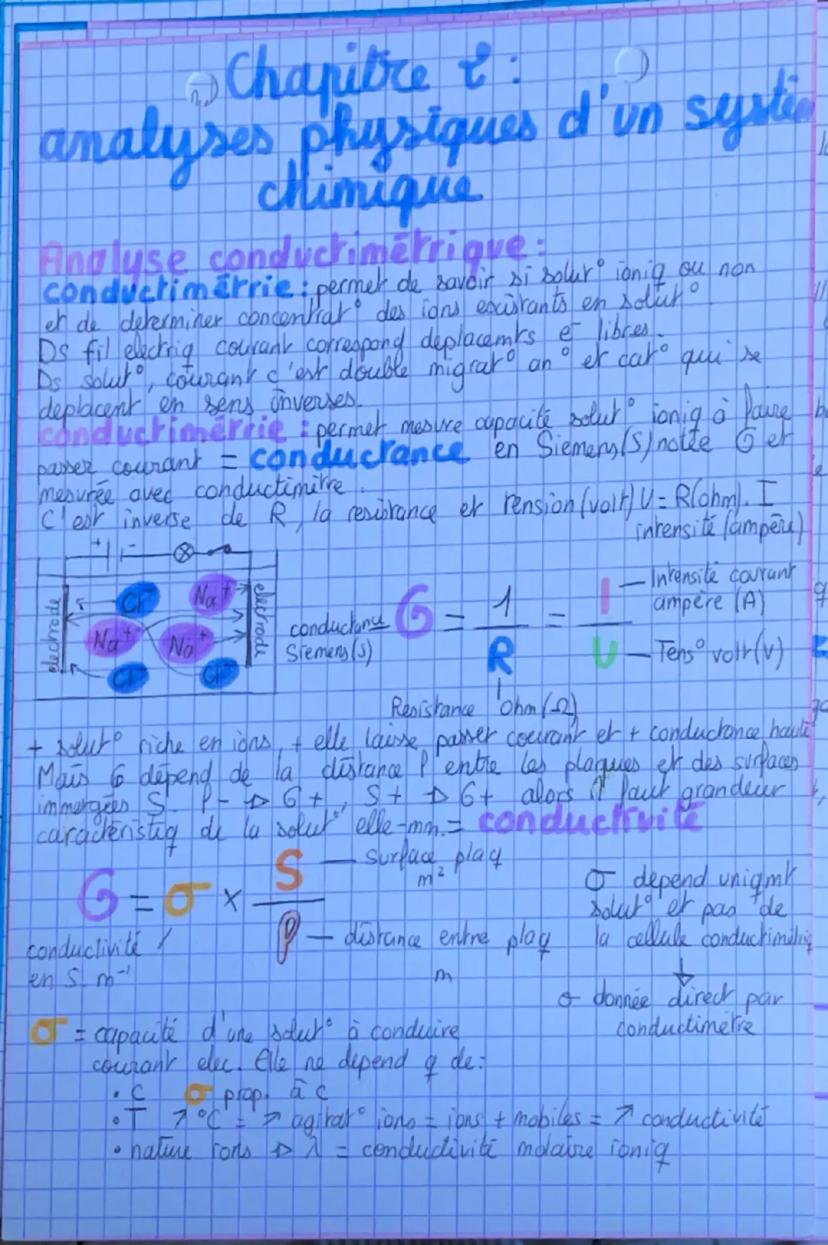 Chapitre 2 :
analyses physiques d'un systè
chimique
Analyse conductimétrique :
conductimétrie : permet de savoir si solut° ioniq ou non
et de determiner concentrat° des ions existants en solut°
Ds fil electriq courant correspond deplacemts e- libres.
Ds solut°, courant c'est double migrat° an° et cat° qui se
deplacent en sens inverses.
conductimétrie : permet mesure capacité solut° ioniq à faire
passer courant = conductance en Siemens(S) notée G et
mesurée avec conductimètre.
C'est inverse de R, la resistance et tension(volt) U = R(ohm). I
intensité (ampère)
+ -
électrode Cl- Na+ électrode
Na+ Na+
Cl- Cl-
conductance
Siemens(S)
G = 1/R = I/U
Intensité courant
ampère (A)
Tens° volt(V)
Resistance ohm(Ω)
+ solut° riche en ions, + elle laisse passer courant et + conductance haute
Mais G dépend de la distance l entre les plaques et des surfaces
immergées S l- → G+, S+ → G+ alors il faut grandeur
caractéristiq de la solut° elle-mm = conductivité
G = σ × S/l
surface plaq
m²
distance entre plaq
m
conductivité
en S m⁻¹
σ depend uniqmt
solut° et pas de
la cellule conductimétriq
↓
σ donnée direct par
conductimètre
σ = capacité d'une solut° à conduire
courant elec. Elle ne depend q de :
• C σ prop. à c
• T ↗°C = ↗ agitat° ions = ions + mobiles = ↗ conductivité
• nature ions → λ = conductivité molaire ioniq